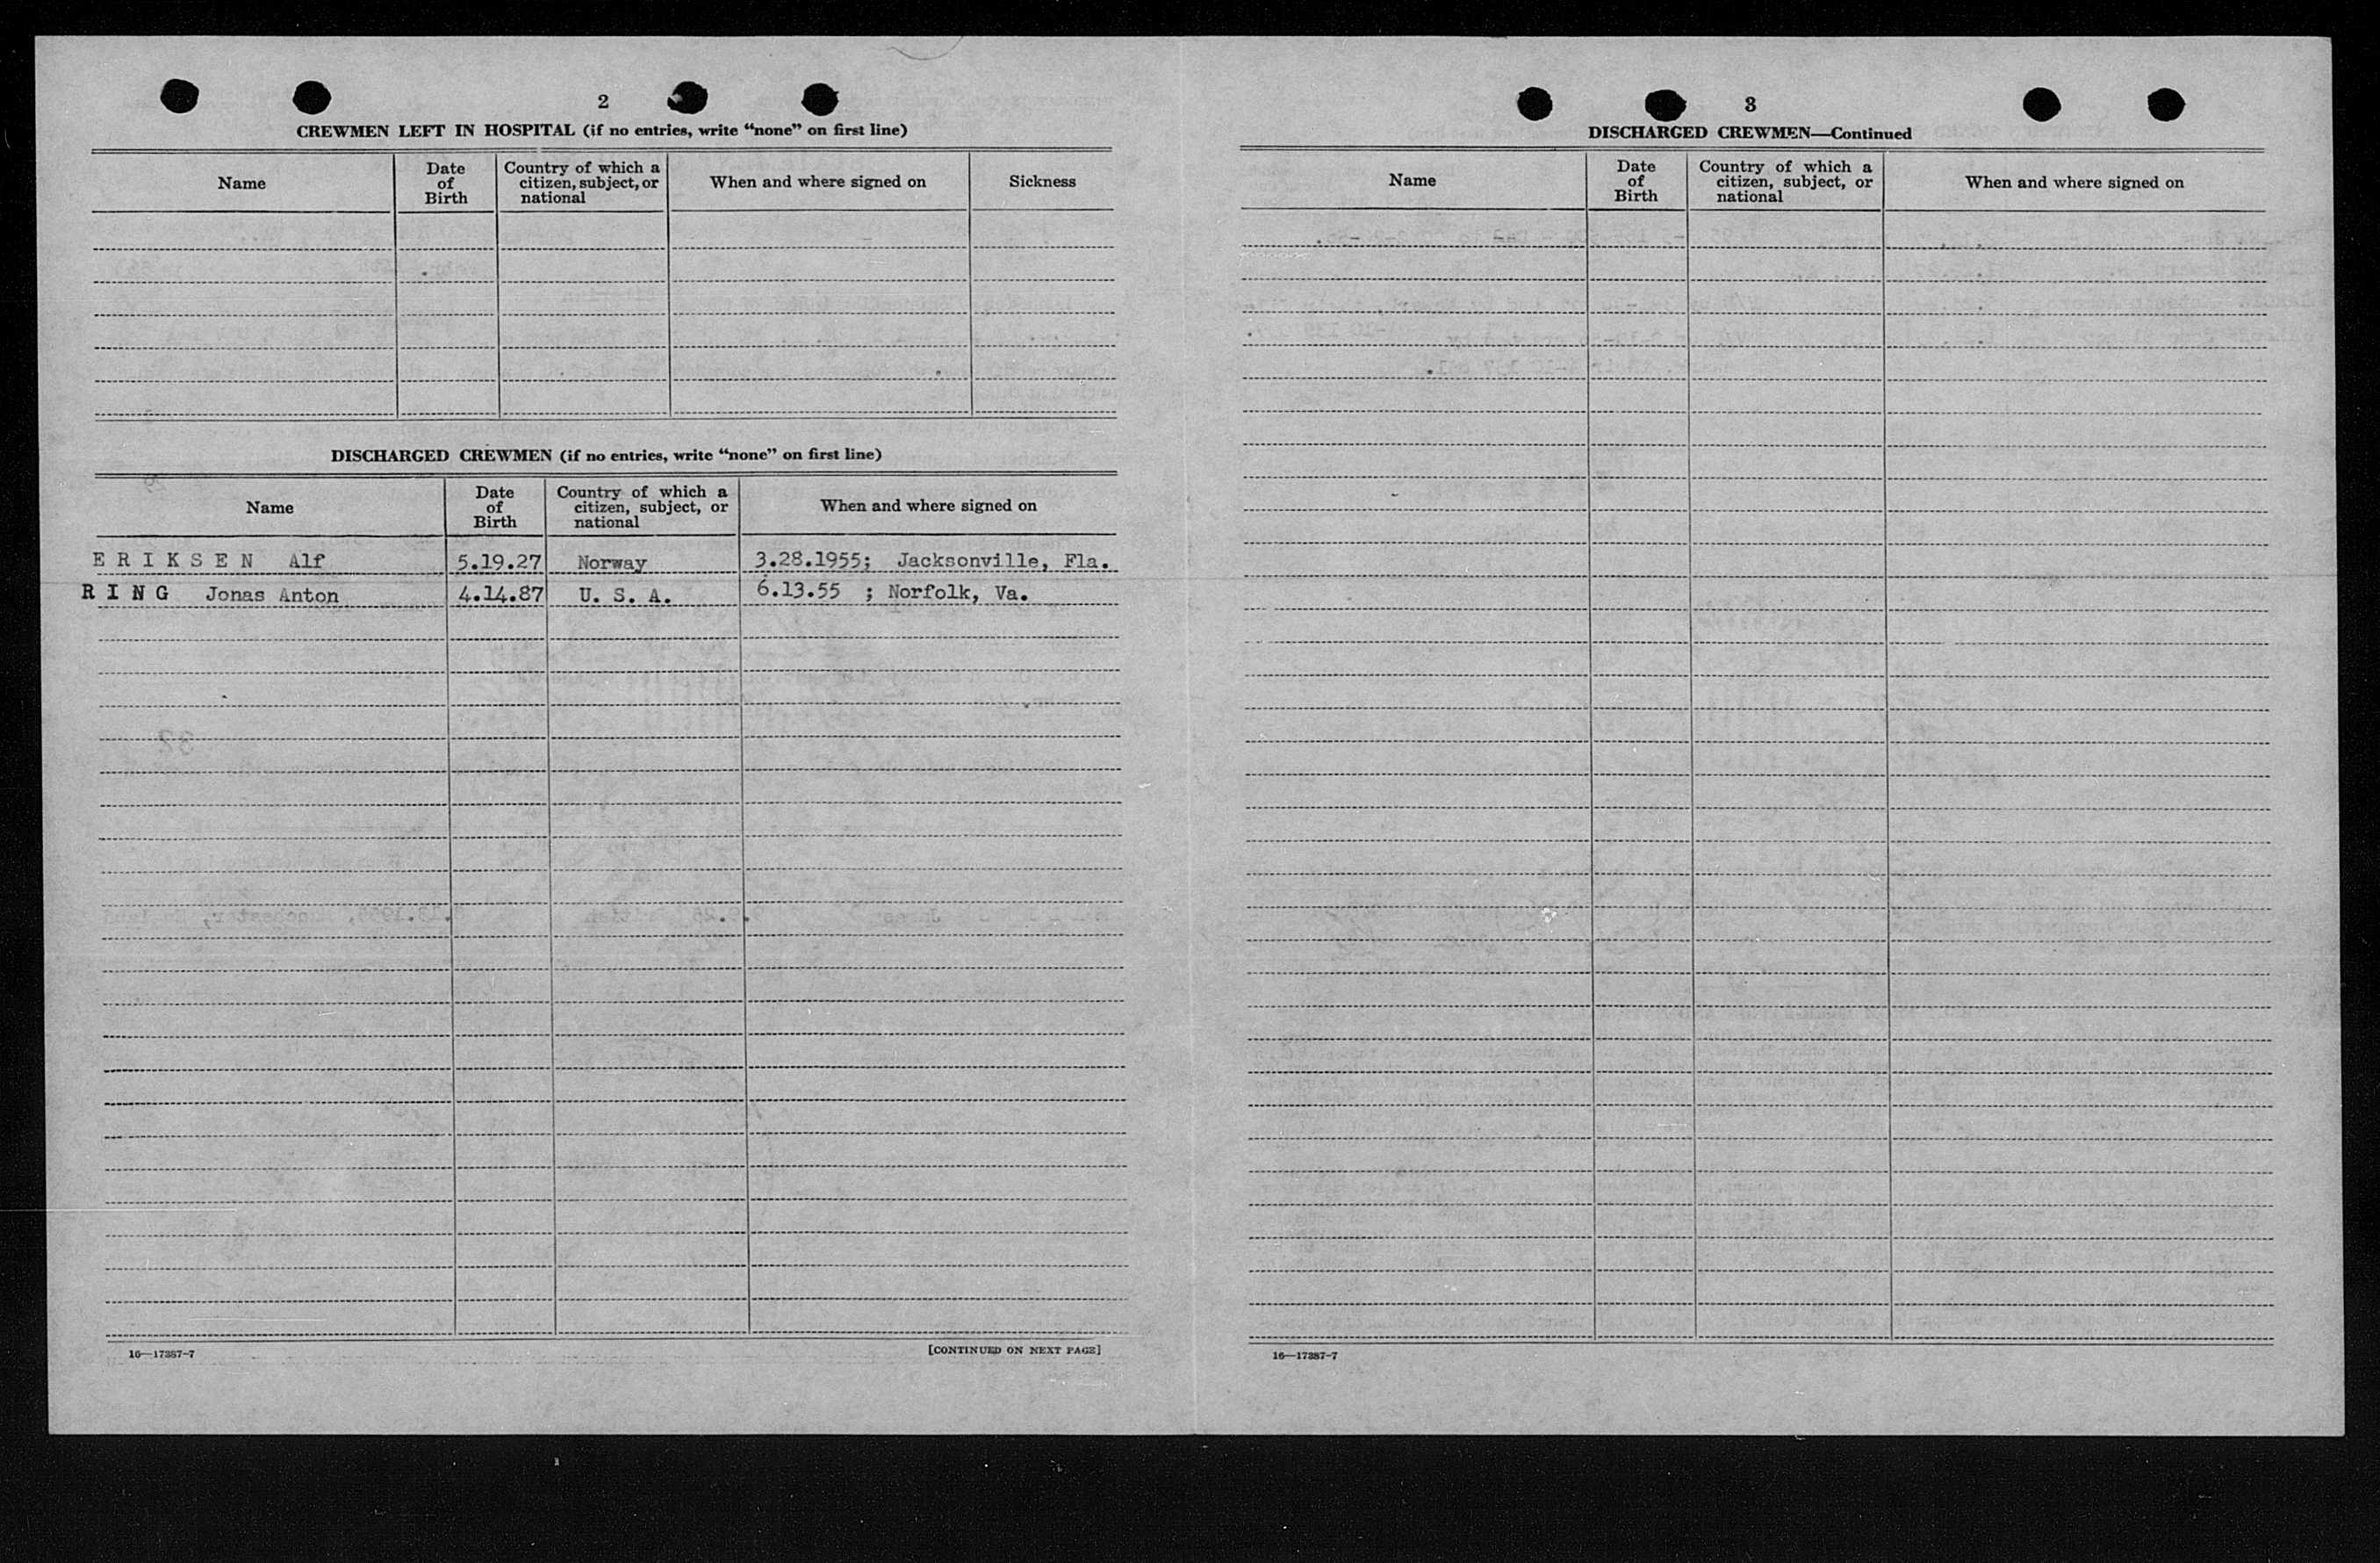 2
CREWMEN LEFT IN HOSPITAL (if no entries, write “none” on first line)
Name
Date of Birth
Country of which a citizen, subject, or national
When and where signed on
Sickness
DISCHARGED CREWMEN (if no entries, write “none” on first line)
Name
Date of Birth
Country of which a citizen, subject, or national
When and where signed on
E R I K S E N Alf 5.19.27 Norway 3.28.1955; Jacksonville, Fla.
R I N G Jonas Anton 4.14.87 U. S. A. 6.13.55 ; Norfolk, Va.
16—17387-7
[CONTINUED ON NEXT PAGE]
3
DISCHARGED CREWMEN—Continued
Name
Date of Birth
Country of which a citizen, subject, or national
When and where signed on
16—17387-7